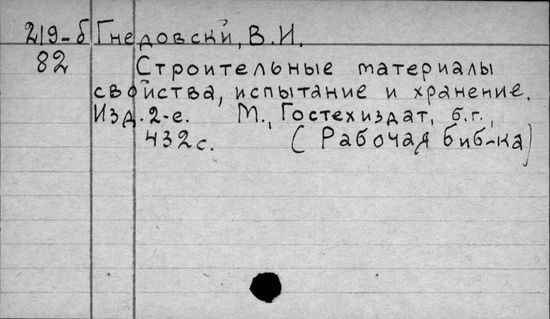 219-б Гнедовский, В.И.
82 Строительные материалы
свойства, испытание и хранение.
Изд. 2-е. М., Гостехиздат, б.г.,
432 с. (Рабочая биб-ка)